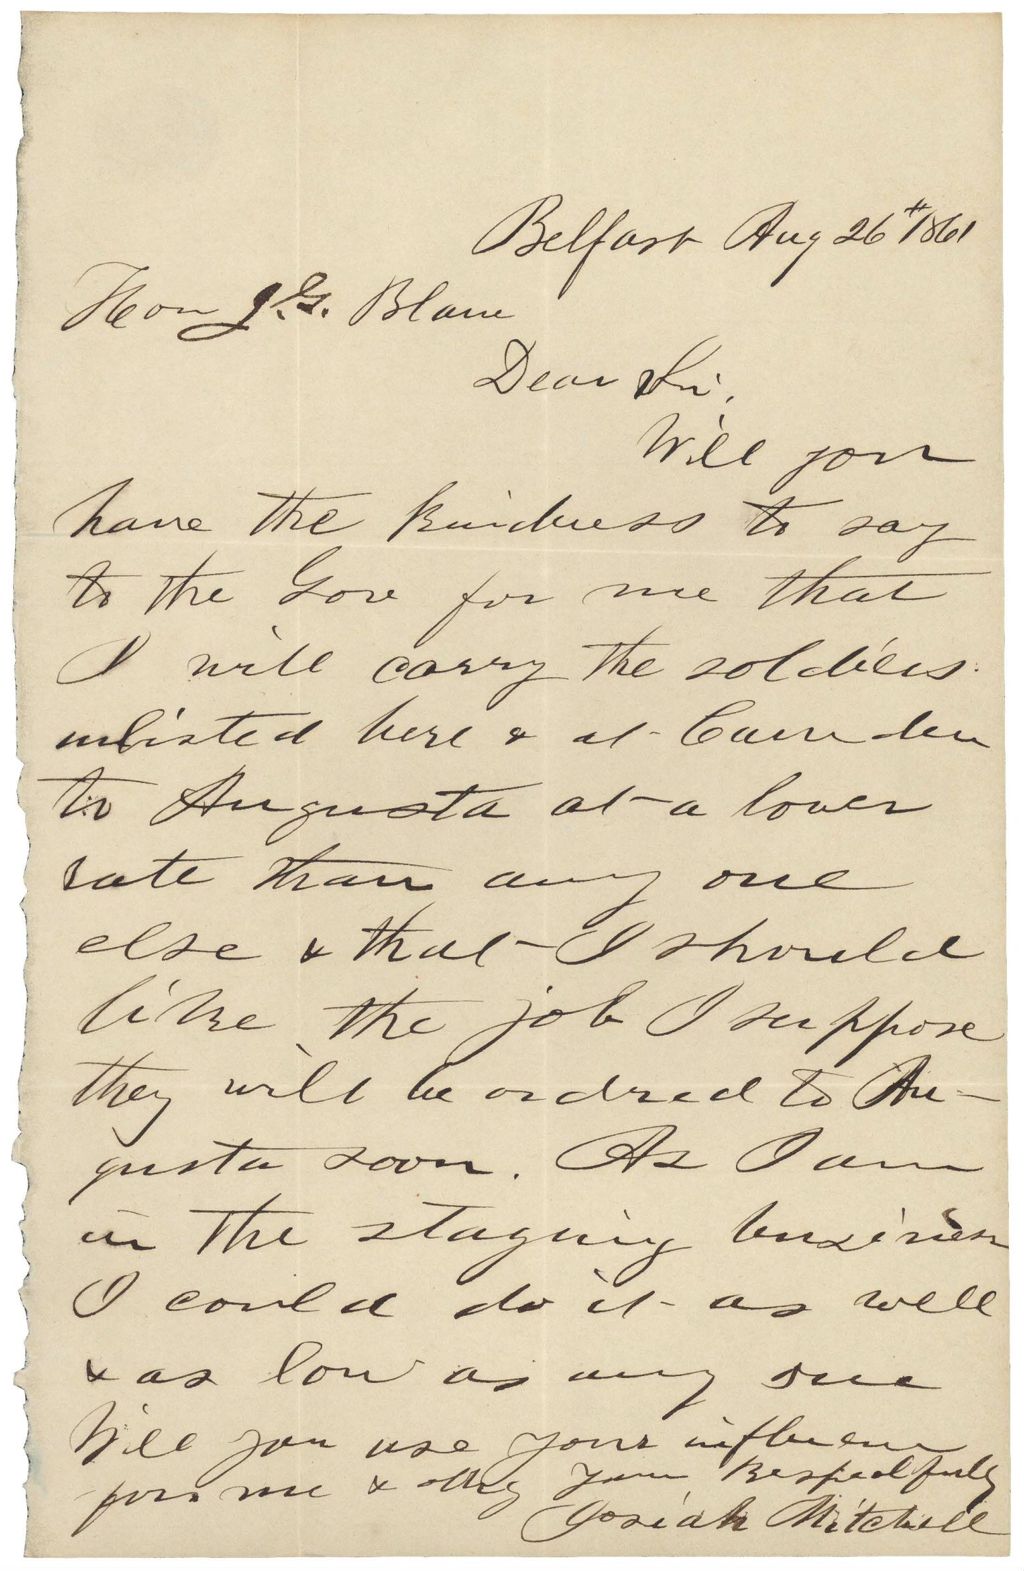 Belfast Aug 26th 1861
Hon J. G. Blane
Dear Sir,
Will you
have the kindness to say
to the Gov for me that
I will carry the soldiers
enlisted here & at Camden
to Augusta at a lower
rate than any one
else & that I should
like the job I suppose
they will be ordred to Au-
gusta soon. As I am
in the staging business
I could do it as well
& as low as any one
Will you use your influence
for me & oblg Your Respectfully
Josiah Mitchell